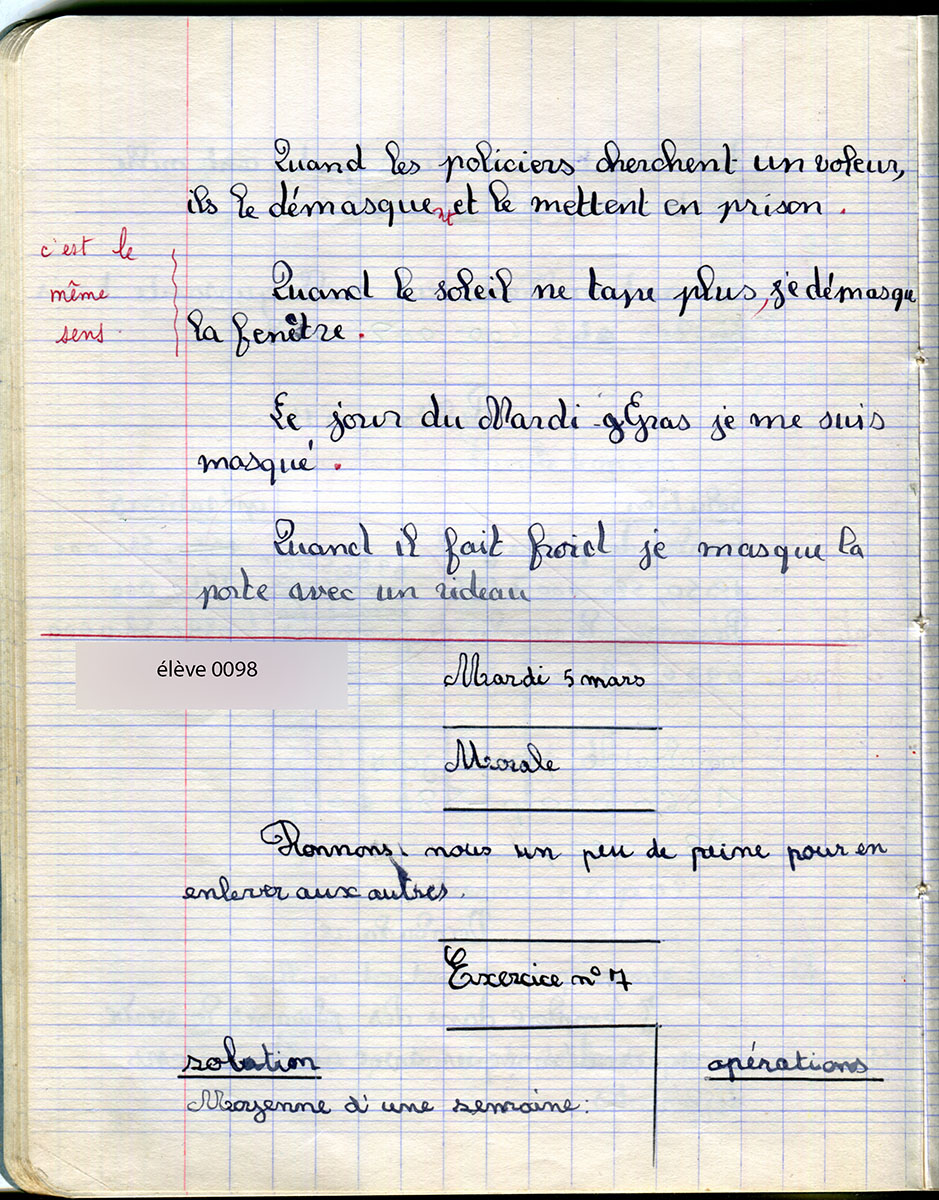 Quand les policiers cherchent un voleur,
ils le démasquent et le mettent en prison.
c'est le
même
sens.
Quand le soleil ne tape plus, je démasque
la fenêtre.
Le jour du Mardi-gGras je me suis
masqué.
Quand il fait froid je masque la
porte avec un rideau
élève 0098
Mardi 5 mars
Morale
Donnons-nous un peu de peine pour en
enlever aux autres.
Exercice n° 7
solution
opérations
Moyenne d'une semaine: